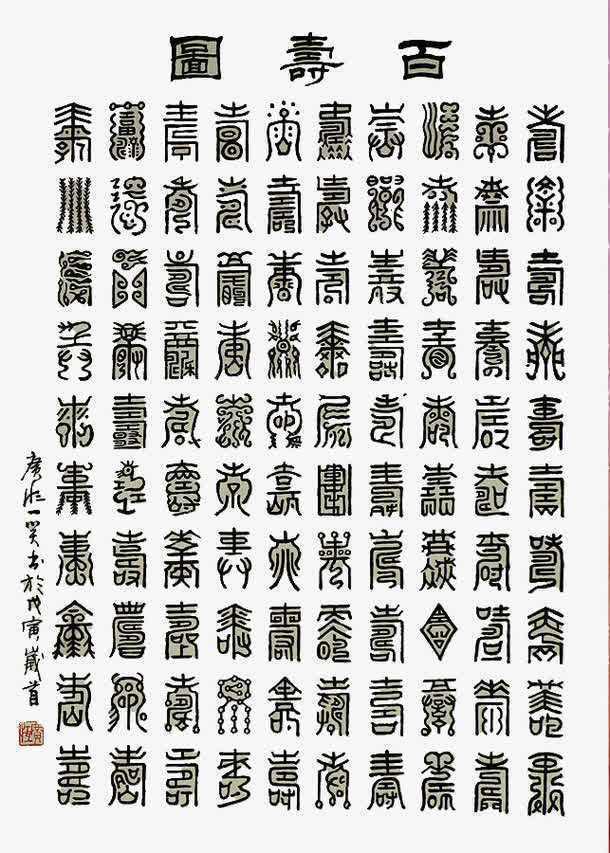 百壽圖
壽壽壽壽壽壽壽壽壽壽
壽壽壽壽壽壽壽壽壽壽
壽壽壽壽壽壽壽壽壽壽
壽壽壽壽壽壽壽壽壽壽
壽壽壽壽壽壽壽壽壽壽
壽壽壽壽壽壽壽壽壽壽
壽壽壽壽壽壽壽壽壽壽
壽壽壽壽壽壽壽壽壽壽
壽壽壽壽壽壽壽壽壽壽
壽壽壽壽壽壽壽壽壽壽
一笑书於戊寅歲首